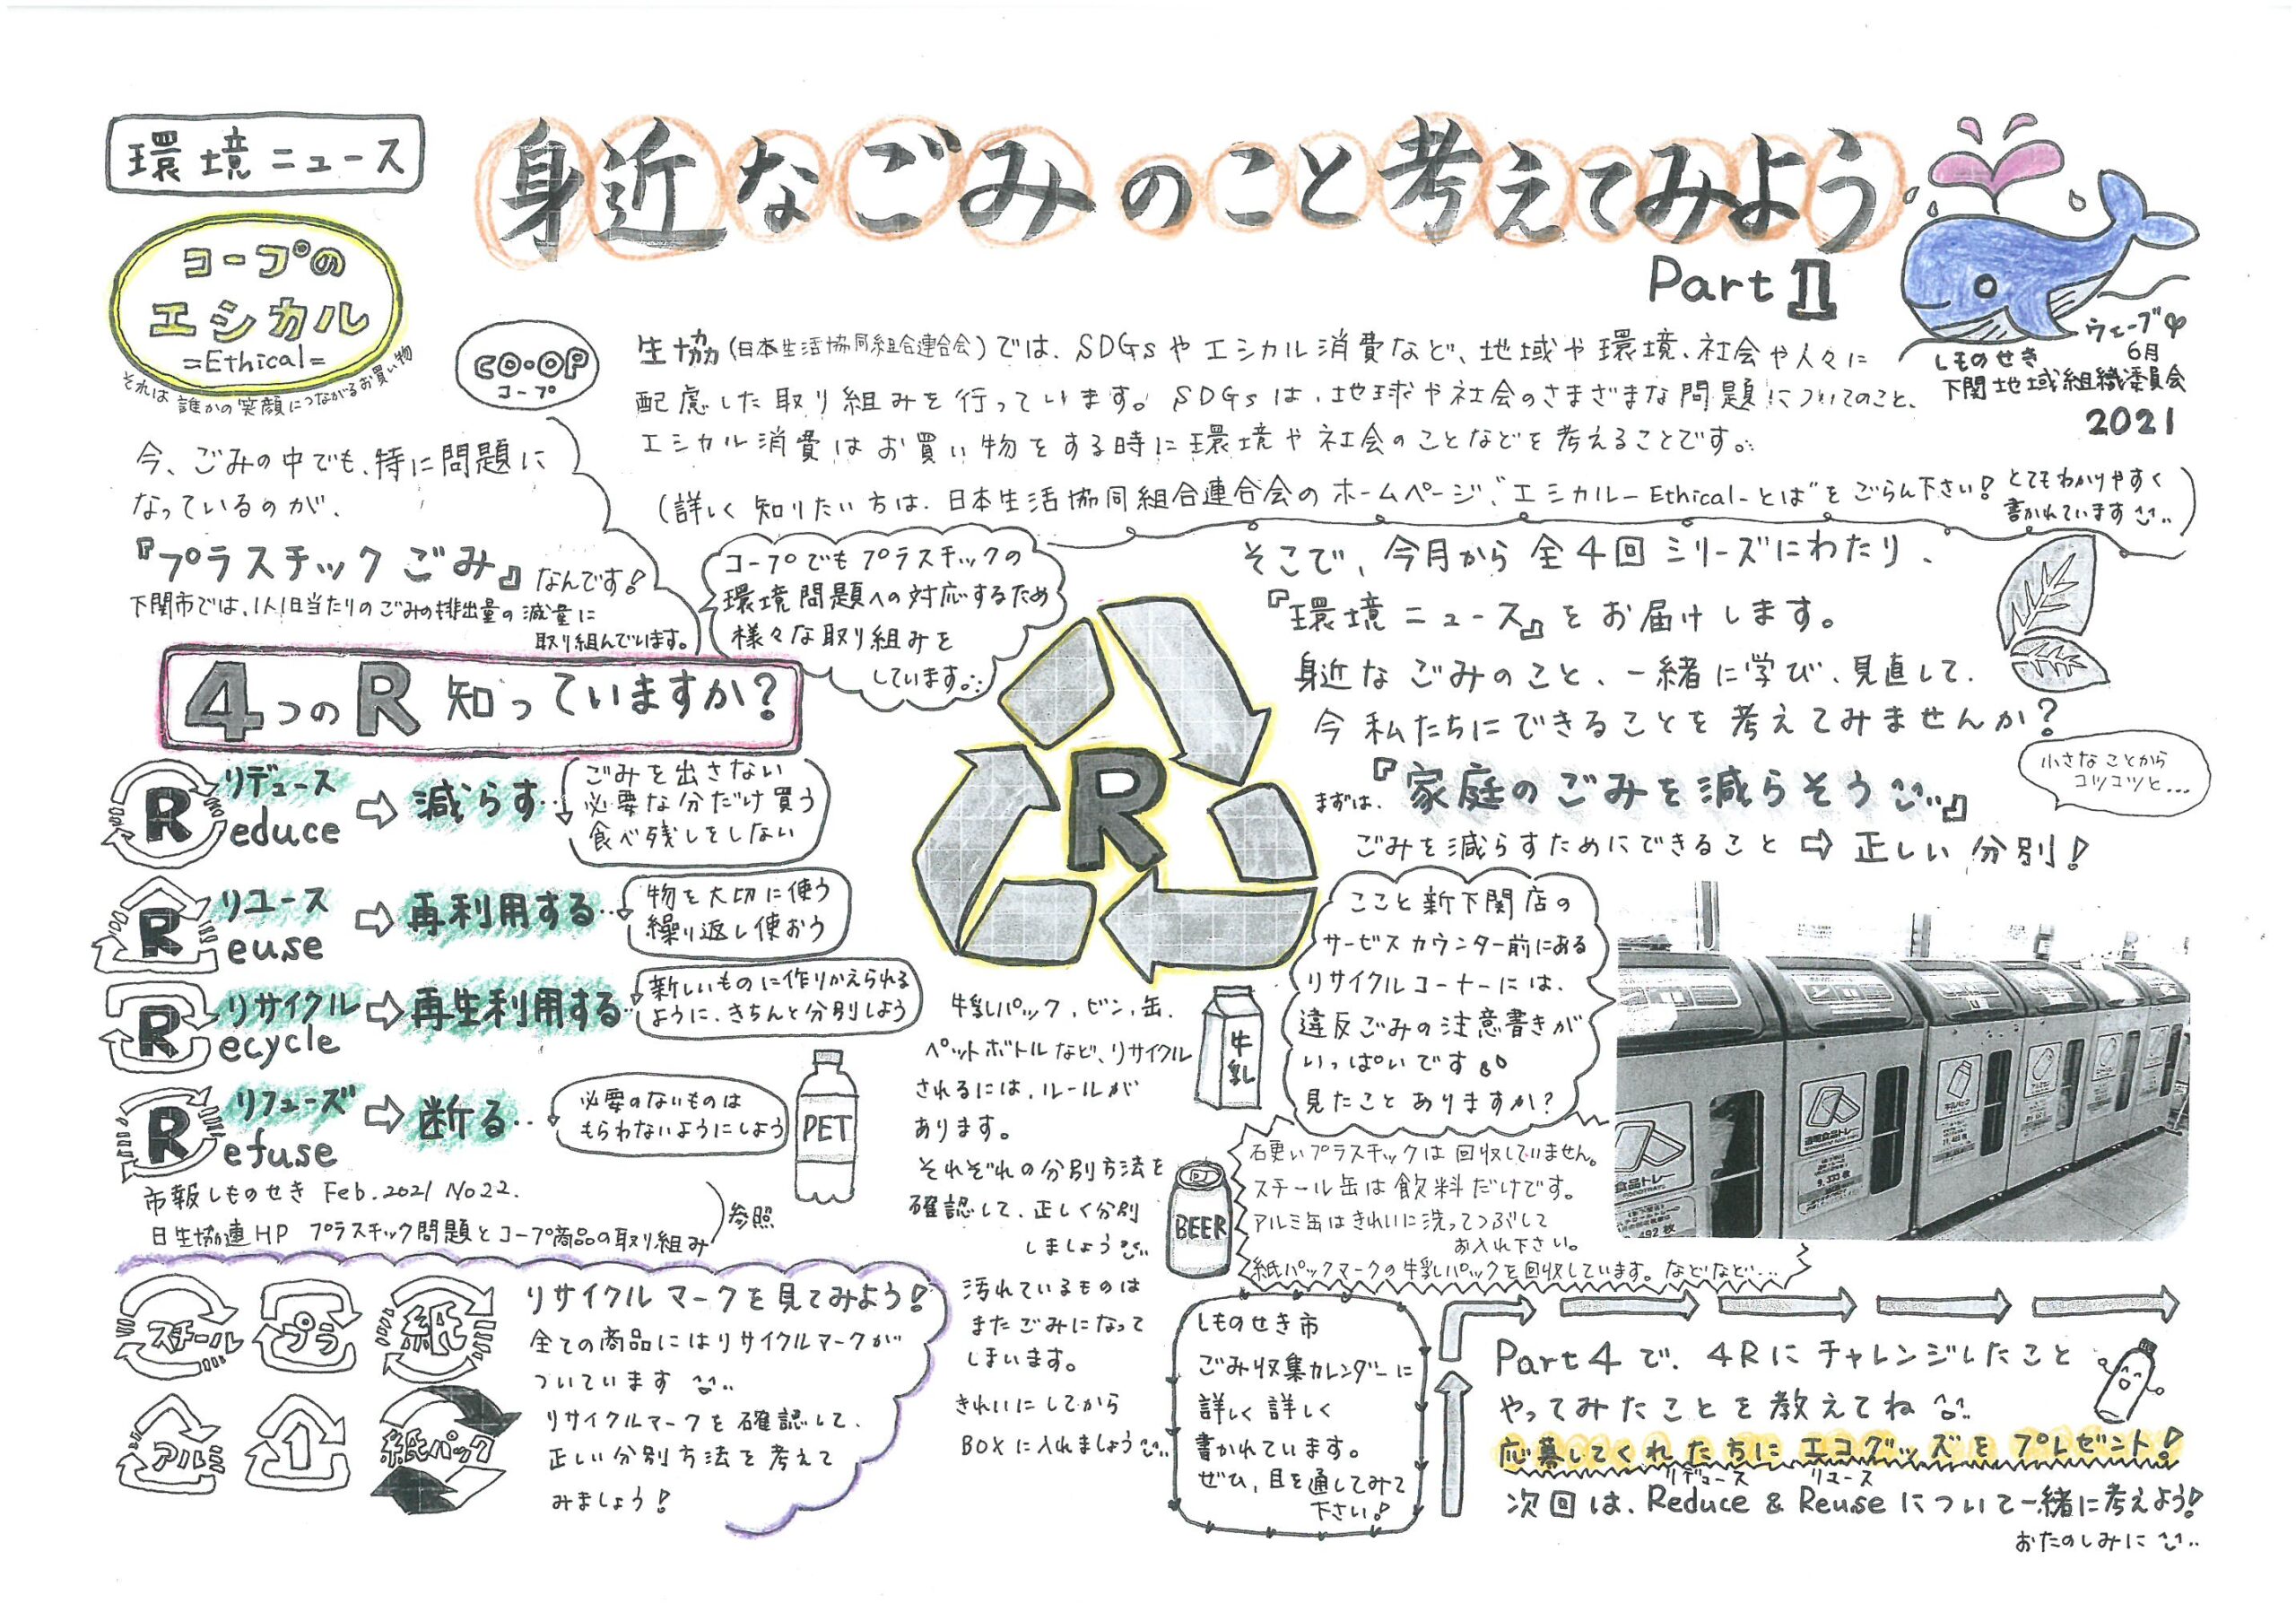 環境ニュース
身近なごみのこと考えてみよう
Part 1
コープの
エシカル
=Ethical=
それは誰かの笑顔につながるお買い物
CO・OP
コープ
ウェーブ
6月
しものせき
下関地域組織委員会
2021
生協(日本生活協同組合連合会)では、SDGsやエシカル消費など、地域や環境、社会や人々に
配慮した取り組みを行っています。SDGsは、地球や社会のさまざまな問題についてのこと、
エシカル消費はお買い物をする時に環境や社会のことなどを考えることです。
(詳しく知りたい方は、日本生活協同組合連合会のホームページ、"エシカル-Ethical-とは"をごらん下さい!とてもわかりやすく
書かれています)
今、ごみの中でも、特に問題に
なっているのが、
『プラスチックごみ』なんです!
下関市では、1人1日当たりのごみの排出量の減量に
取り組んでいます。
コープでもプラスチックの
環境問題への対応するため
様々な取り組みを
しています。
そこで、今月から全4回シリーズにわたり、
『環境ニュース』をお届けします。
身近なごみのこと、一緒に学び、見直して、
今私たちにできることを考えてみませんか?
小さなことから
コツコツと...
まずは、『家庭のごみを減らそう』
ごみを減らすためにできること⇨正しい分別!
4つのR知っていますか?
リデュース
Reduce
⇨減らす…
ごみを出さない
必要な分だけ買う
食べ残しをしない
リユース
Reuse
⇨再利用する…
物を大切に使う
繰り返し使おう
リサイクル
Recycle
⇨再生利用する…
新しいものに作りかえられる
ように、きちんと分別しよう
リフューズ
Refuse
⇨断る…
必要のないものは
もらわないようにしよう
PET
市報しものせき Feb.2021 No22.
日生協連HP プラスチック問題とコープ商品の取り組み
参照
R
牛乳パック、ビン、缶、
ペットボトルなど、リサイクル
されるには、ルールが
あります。
それぞれの分別方法を
確認して、正しく分別
しましょう
汚れているものは
またごみになって
しまいます。
きれいにしてから
BOXに入れましょう
牛乳
BEER
ここと新下関店の
サービスカウンター前にある
リサイクルコーナーには、
違反ごみの注意書きが
いっぱいです
見たことありますか?
硬いプラスチックは回収していません。
スチール缶は飲料だけです。
アルミ缶はきれいに洗ってつぶして
お入れ下さい。
紙パックマークの牛乳パックを回収しています。などなど…
食品トレー
透明食品トレー
9,333枚
492枚
牛乳パック
スチール
プラ
紙
アルミ
1
紙パック
リサイクルマークを見てみよう!
全ての商品にはリサイクルマークが
ついています
リサイクルマークを確認して、
正しい分別方法を考えて
みましょう!
しものせき市
ごみ収集カレンダーに
詳しく詳しく
書かれています。
ぜひ、目を通してみて
下さい!
Part4で、4Rにチャレンジしたこと
やってみたことを教えてね
応募してくれた方にエコグッズをプレゼント!
リデュース リユース
次回は、Reduce & Reuseについて一緒に考えよう!
おたのしみに